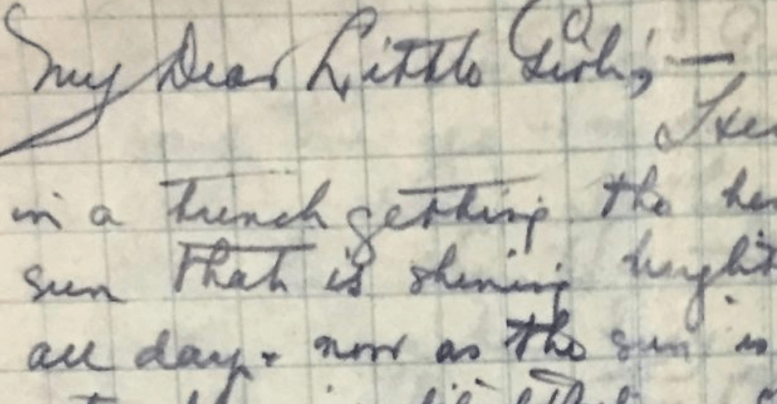 My Dear Little Girl; —
in a trench getting the
sun that is shining bright
all day & now as the sun is